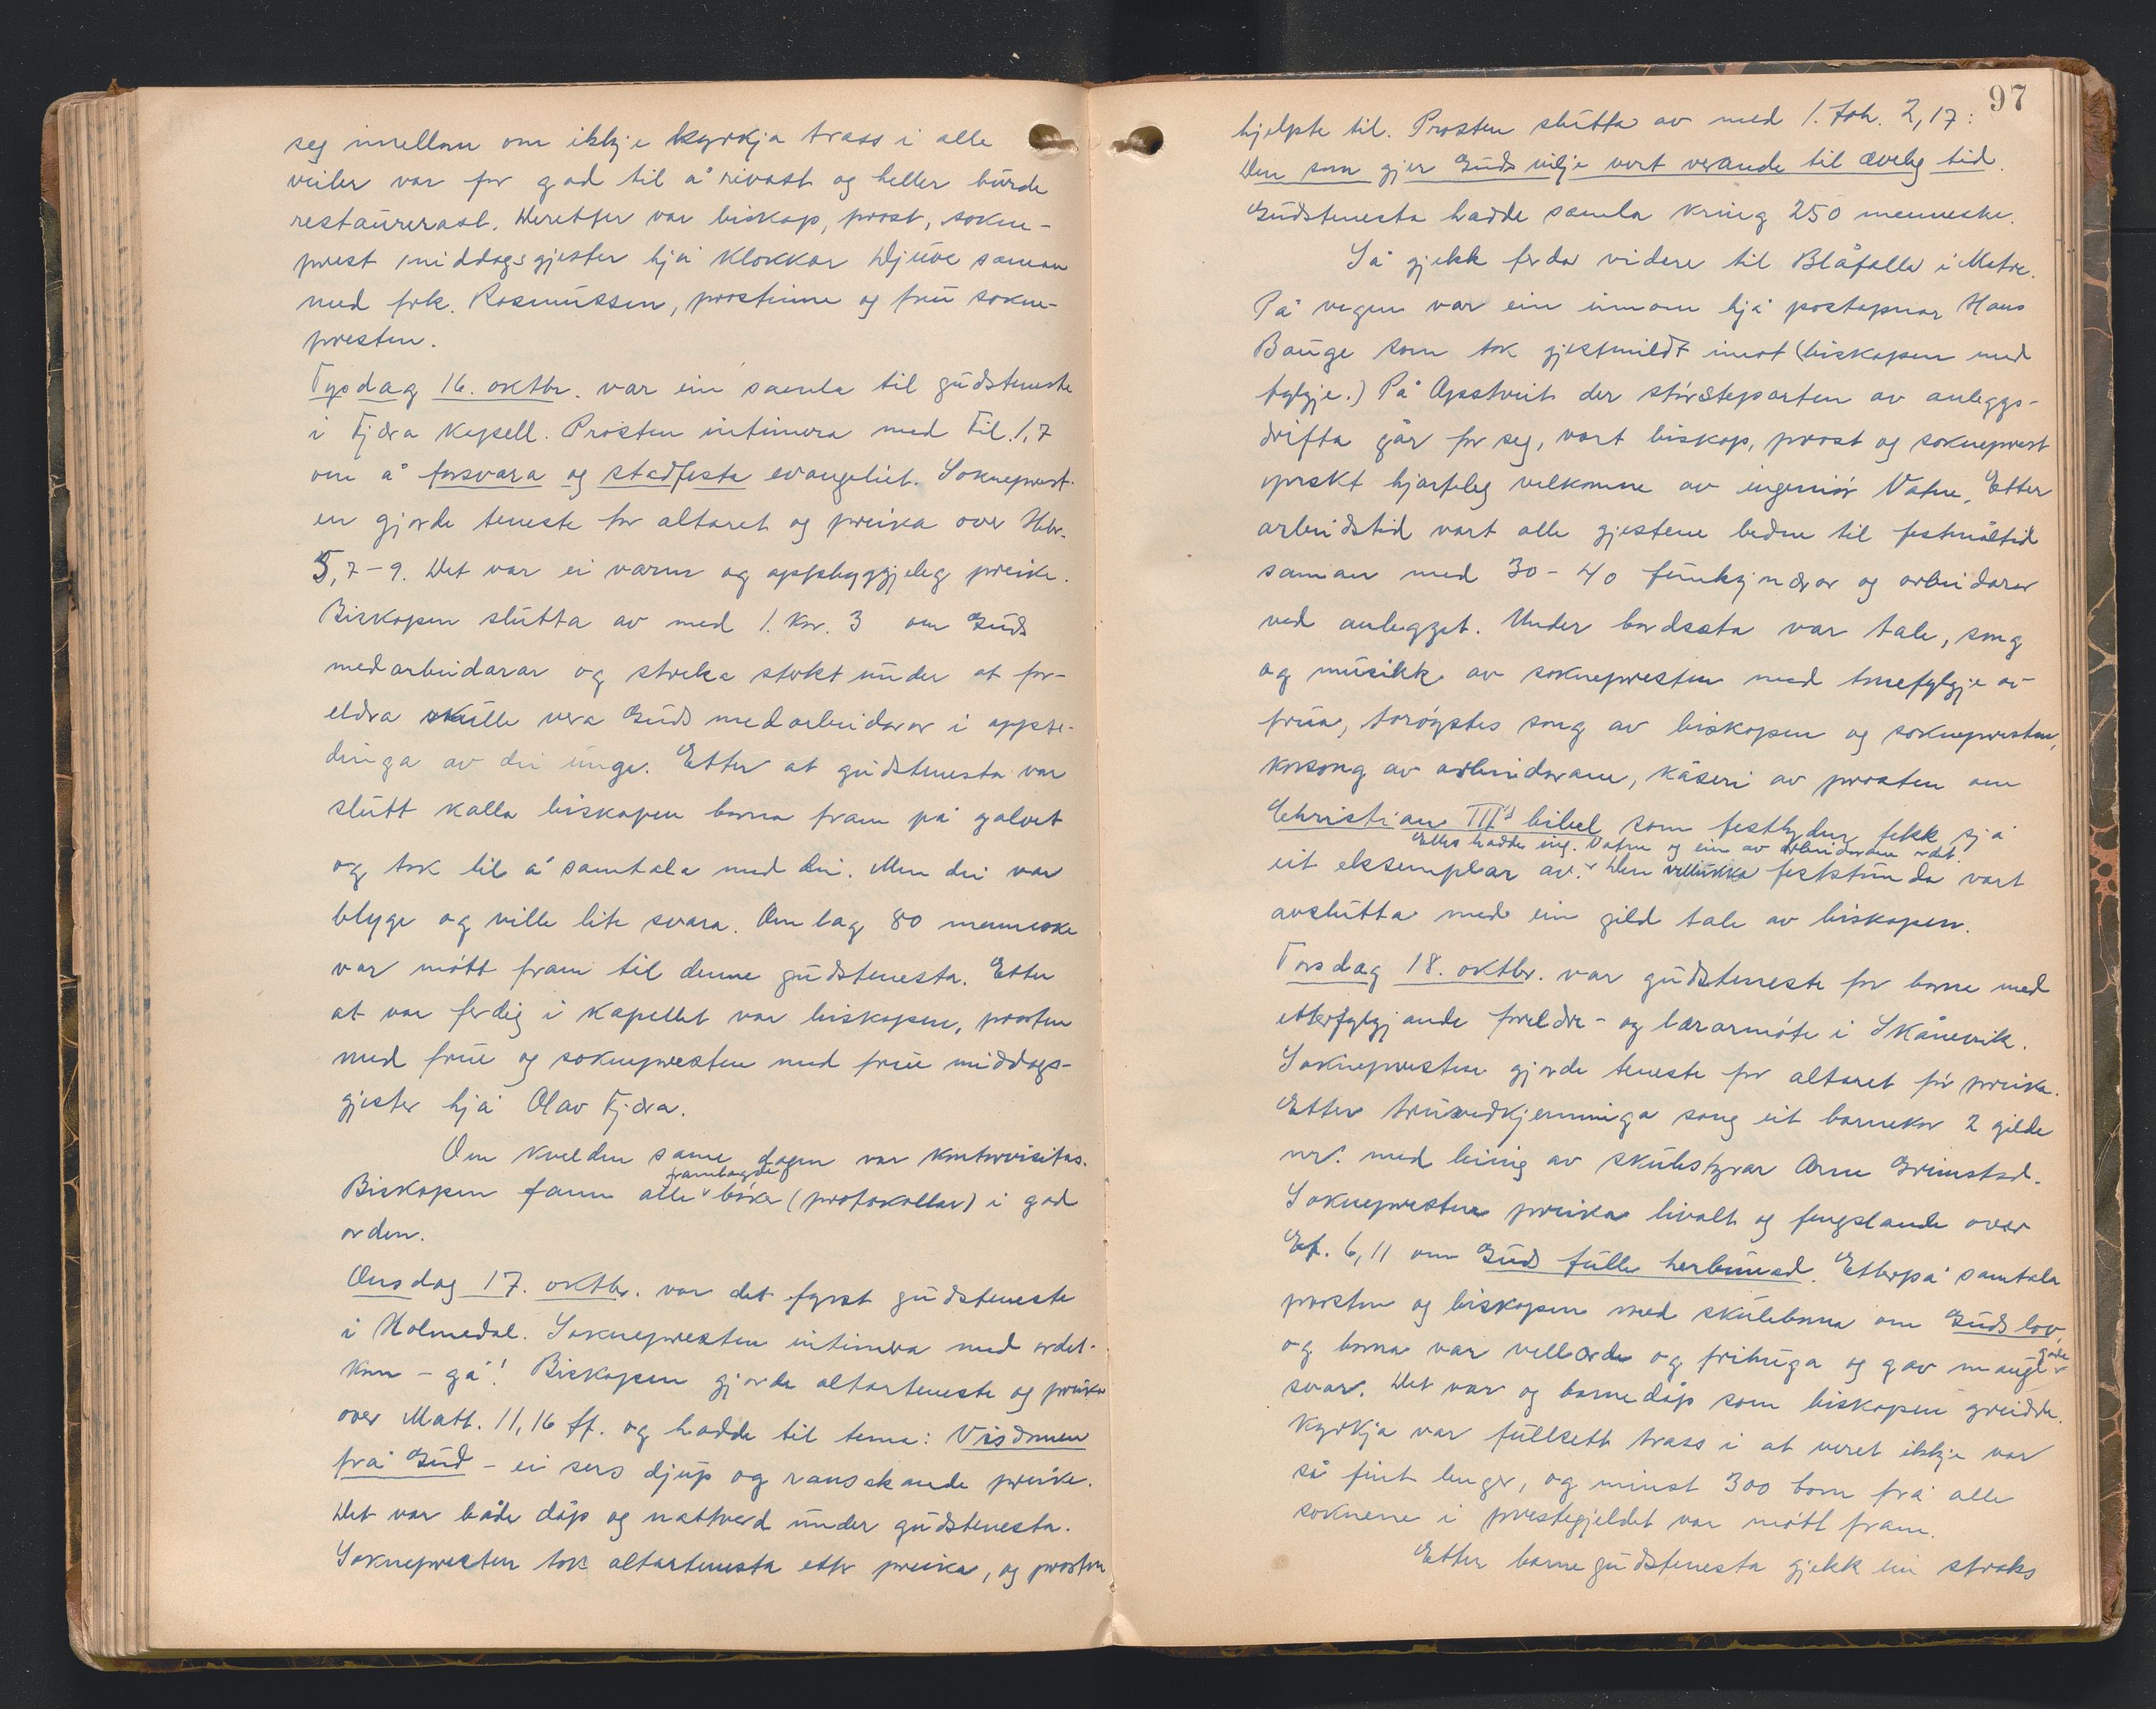 seg imellom om ikkje kyrkja trass i alle
veiler var for god til å rivast og heller burde
restaurerast. Deretter var biskop, prost, sokne-
prest middagsgjester hjå klokkar Djuve saman
med frk. Rasmussen, prostinne og fru sokne-
presten.
Tysdag 16. oktbr. var ein samla til gudsteneste
i Fjæra kapell. Prosten intimera med Fil. 1,7
om å forsvara og stadfesta evangeliet. Sokneprest-
en gjorde teneste for altaret og preika over Hebr.
5, 7-9. Det var ei varm og oppbyggjeleg preike.
Biskopen slutta av med 1. Kor. 3 om Guds
medarbeidarar og streka sterkt under at for-
eldra skulle vera Guds medarbeidarar i oppse-
dinga av dei unge. Etter at gudstenesta var
slutt kalla biskopen borna fram på golvet
og tok til å samtala med dei. Men dei var
blyge og ville lite svara. Om lag 80 menneske
var møtt fram til denne gudstenesta. Etter
at var ferdig i kapellet var biskopen, prosten
med frue og soknepresten med frue middags-
gjester hjå Olav Fjæra.
Om kvelden same dagen var kontorvisitas.
Biskopen fann alle framlagde bøker (protokollar) i god
orden.
Onsdag 17. oktbr. var det fyrst gudsteneste
i Holmedal. Soknepresten intimera med ordet-
Kom - gå! Biskopen gjorde altarteneste og preika
over Matt. 11, 16 ff. og hadde til tema: Visdomen
frå Gud - ei sers djup og ransakande preike.
Det var både dåp og nattverd under gudstenesta.
Soknepresten tok altartenesta etter preika, og prosten
97
hjelpte til. Prosten slutta av med 1. Joh. 2, 17:
Den som gjer Guds vilje vert verande til æveleg tid.
Gudstenesta hadde samla kring 250 menneske.
Så gjekk ferda vidare til Blåfalla i Matre.
På vegen var ein innom hjå postopnar Hans
Bauge som tok gjestmildt imot (biskopen med
fylgje.) På Opstveit der størsteparten av anleggs-
drifta går for seg, vart biskop, prost og sokneprest
ynskt hjarteleg velkomne av ingeniør Vatne. Etter
arbeidstid vart alle gjestene bedne til festmåltid
saman med 30-40 funksjonærar og arbeidarar
ved anlegget. Under bordsæta var tale, song
og musikk av soknepresten med tonefylgje av
frua, torøystes song av biskopen og soknepresten,
korsong av arbeidarane, kåseri av prosten om
Christian III's bibel som festlyden fekk sjå
eit eksemplar av. Elles hadde ing. Vatne og ein av arbeidarane ordet. Den vellukka feststunda vart
avslutta med ein gild tale av biskopen.
Torsdag 18. oktbr. var gudsteneste for borna med
etterfylgjande foreldre- og lærarmøte i Skånevik.
Soknepresten gjorde teneste for altaret før preika.
Etter truvedkjenninga song eit barnekor 2 gilde
nr. med leiing av skulestyrar Arne Grimstad.
Soknepresten preika livalt og fengslande over
Ef. 6, 11 om Guds fulle herbunad. Etterpå samtala
prosten og biskopen med skuleborna om Guds lov,
og borna var vellærde og frihuga og gav mange gode
svar. Det var og barnedåp som biskopen greidde.
Kyrkja var fullsett trass i at veret ikkje var
så fint lenger, og minst 300 born frå alle
soknene i prestegjeldet var møtt fram.
Etter barnegudstenesta gjekk ein straks